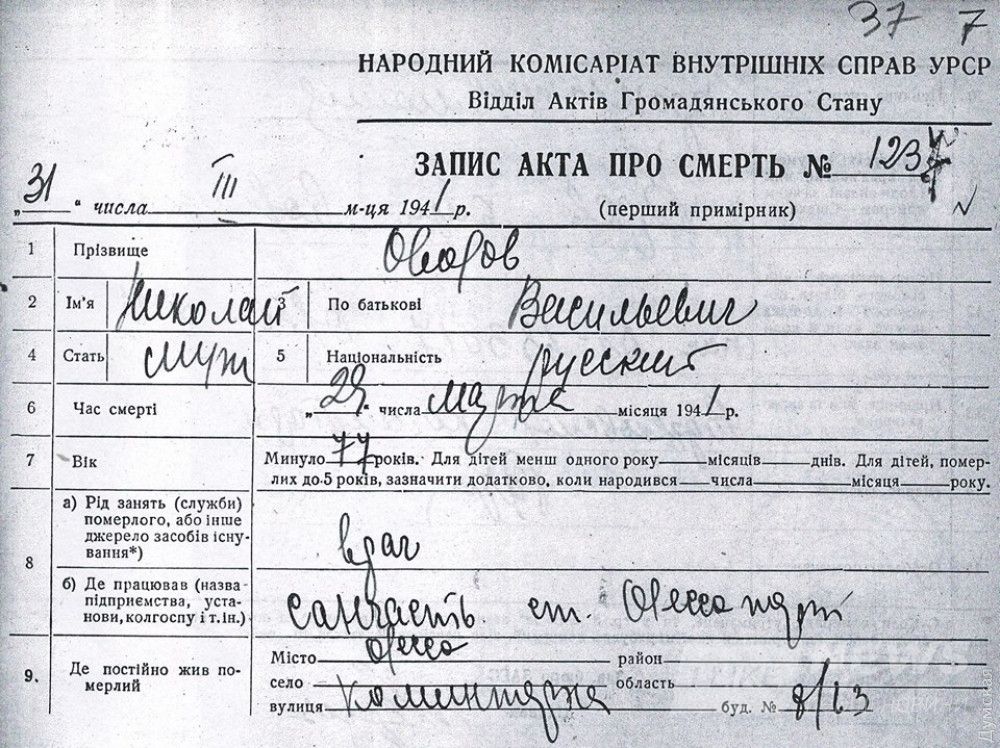 37 7
НАРОДНИЙ КОМІСАРІАТ ВНУТРІШНІХ СПРАВ УРСР
Відділ Актів Громадянського Стану
ЗАПИС АКТА ПРО СМЕРТЬ № 1237
„31“ числа III м-ця 1941 р. (перший примірник)
1 Прізвище
2 Ім'я Николай 3 По батькові Васильевич
4 Стать муж 5 Національність русский
6 Час смерті „29“ числа марта місяця 1941 р.
7 Вік Минуло 77 років. Для дітей менш одного року місяців днів. Для дітей, помер-
лих до 5 років, зазначити додатково, коли народився числа місяця року.
8 а) Рід занять (служби)
померлого, або інше
джерело засобів існу-
вання*) врач
б) Де працював (назва
підприємства, уста-
нови, колгоспу і т.ін.) Санчасть ст. Одесса
9. Де постійно жив по-
мерлий
Місто Одесса район
село область
вулиця Коминтерна буд. № 8/13